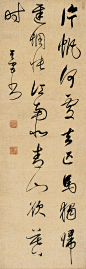 片帆何處去匹馬獨歸
遲惆悵江南北青山欲暮
時